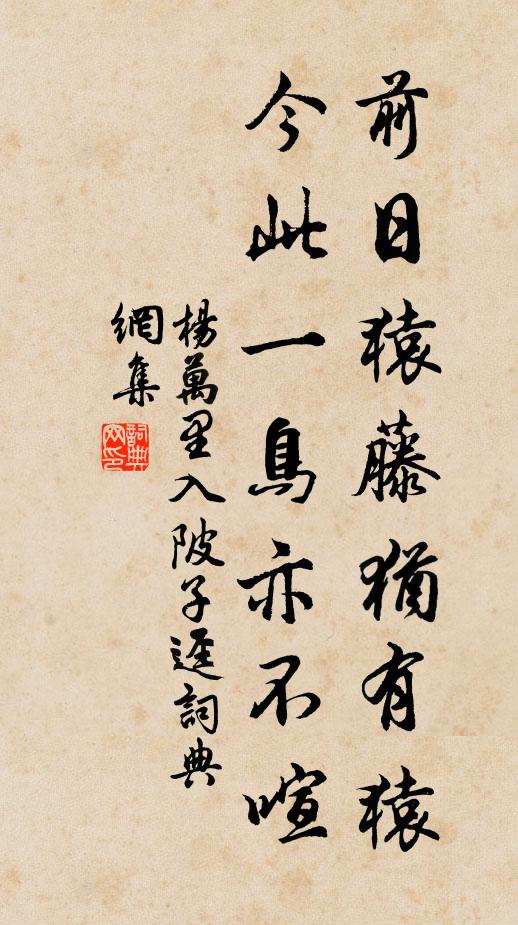 前日猿藤猶有猿
今此一鳥亦不喧
楊萬里入陂子逕詞典
網集
詞典
网印